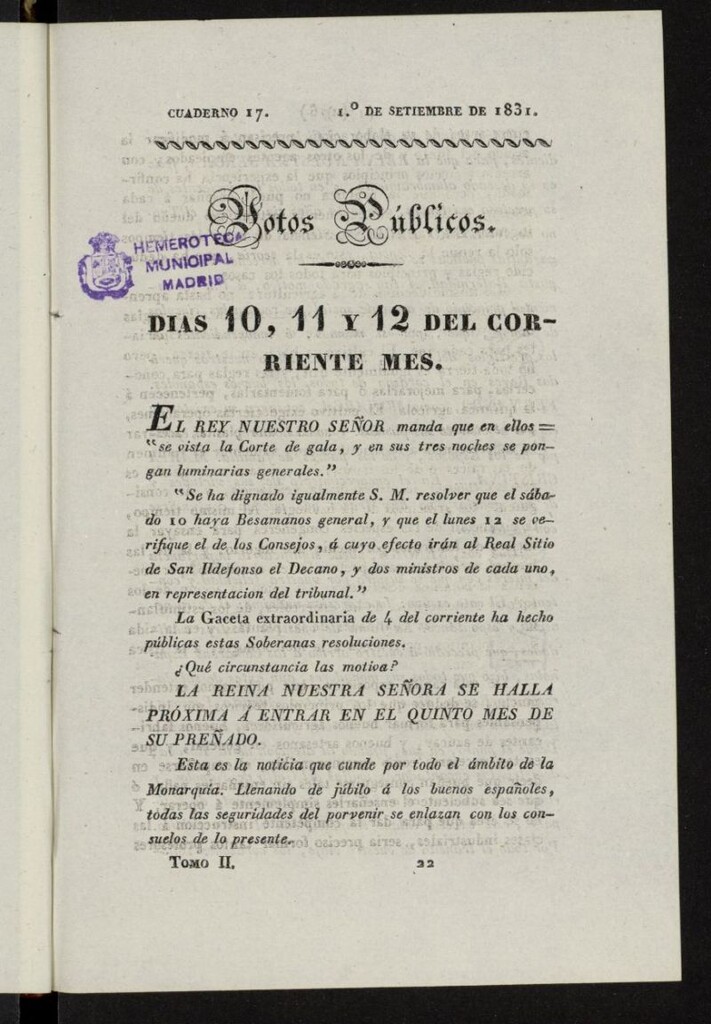 CUADERNO 17. 1.º DE SETIEMBRE DE 1831.
Votos Públicos.
HEMEROTECA
MUNICIPAL
MADRID
DIAS 10, 11 Y 12 DEL COR-
RIENTE MES.
EL REY NUESTRO SEÑOR manda que en ellos =
"se vista la Corte de gala, y en sus tres noches se pon-
gan luminarias generales."
"Se ha dignado igualmente S. M. resolver que el sába-
do 10 haya Besamanos general, y que el lunes 12 se ve-
rifique el de los Consejos, á cuyo efecto irán al Real Sitio
de San Ildefonso el Decano, y dos ministros de cada uno,
en representacion del tribunal."
La Gaceta extraordinaria de 4 del corriente ha hecho
públicas estas Soberanas resoluciones.
¿Qué circunstancia las motiva?
LA REINA NUESTRA SEÑORA SE HALLA
PRÓXIMA Á ENTRAR EN EL QUINTO MES DE
SU PREÑADO.
Esta es la noticia que cunde por todo el ámbito de la
Monarquía. Llenando de júbilo á los buenos españoles,
todas las seguridades del porvenir se enlazan con los con-
suelos de lo presente.
TOMO II. 22